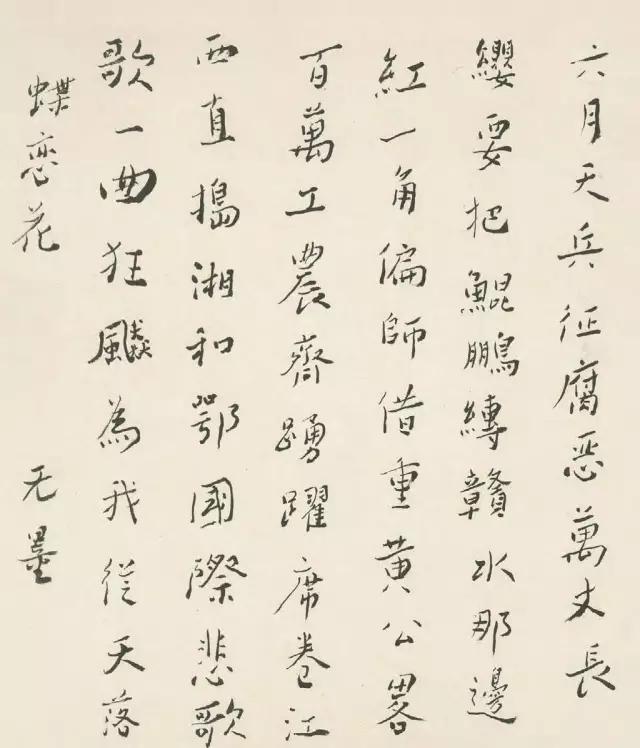 六月天兵征腐恶萬丈長
纓要把鯤鵬縛贛水那邊
紅一角偏師借重黄公畧
百萬工農齊踴躍席卷江
西直搗湘和鄂國際悲歌
歌一曲狂飈為我從天落
蝶恋花 无墨